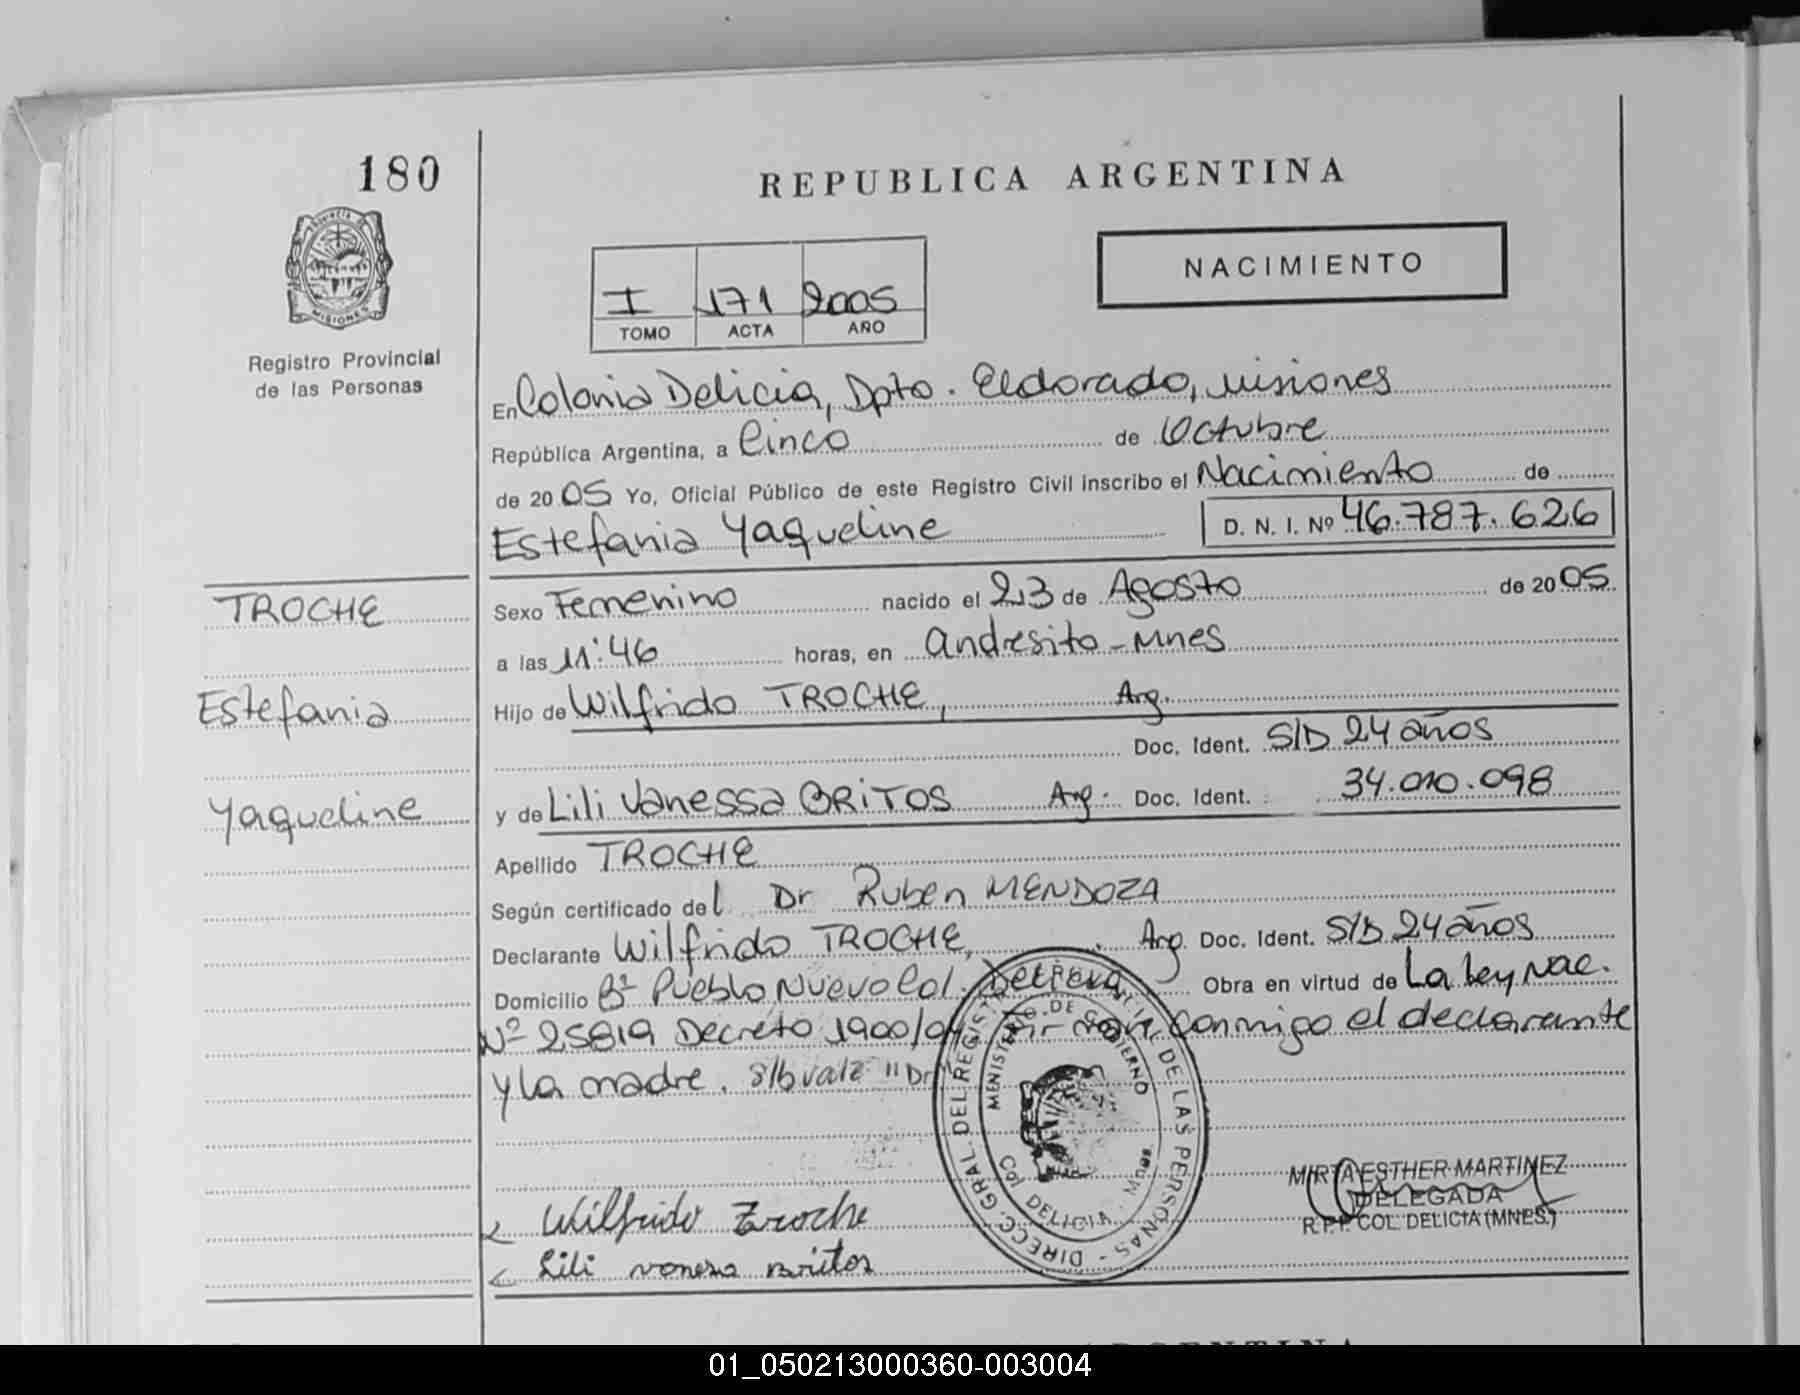 180
REPUBLICA ARGENTINA
PROVINCIA DE
MISIONES
NACIMIENTO
I 171 2005
TOMO ACTA AÑO
Registro Provincial
de las Personas
En Colonia Delicia, Dpto. Eldorado, Misiones
República Argentina, a Cinco de Octubre
de 2005 Yo, Oficial Público de este Registro Civil inscribo el Nacimiento de
Estefania Yaqueline D. N. I. Nº 46.787.626
TROCHE
Estefania
Yaqueline
Sexo Femenino nacido el 23 de Agosto de 2005.
a las 11:46 horas, en Andresito - Mnes
Hijo de Wilfrido TROCHE, Arg.
Doc. Ident. S/D 24 años
y de Lili Vanessa BRITOS Arg. Doc. Ident. 34.010.098
Apellido TROCHE
Según certificado del Dr Ruben MENDOZA
Declarante Wilfrido TROCHE, Arg. Doc. Ident. S/D 24 años
Domicilio Bº Pueblo Nuevo Col. Delicia Obra en virtud de La Ley Nac.
Nº 25819 Decreto 1900/04 Firman conmigo el declarante
y la madre. S/b vale "Dr"
DIRECC. GRAL. DEL REGISTRO PROVINCIAL DE LAS PERSONAS
MINISTERIO DE GOBIERNO
DELICIA
MIRTA ESTHER MARTINEZ
DELEGADA
R.P.P. COL. DELICIA (MNES.)
Wilfrido Troche
Lili vanesa britos
ARGENTINA
01_050213000360-003004